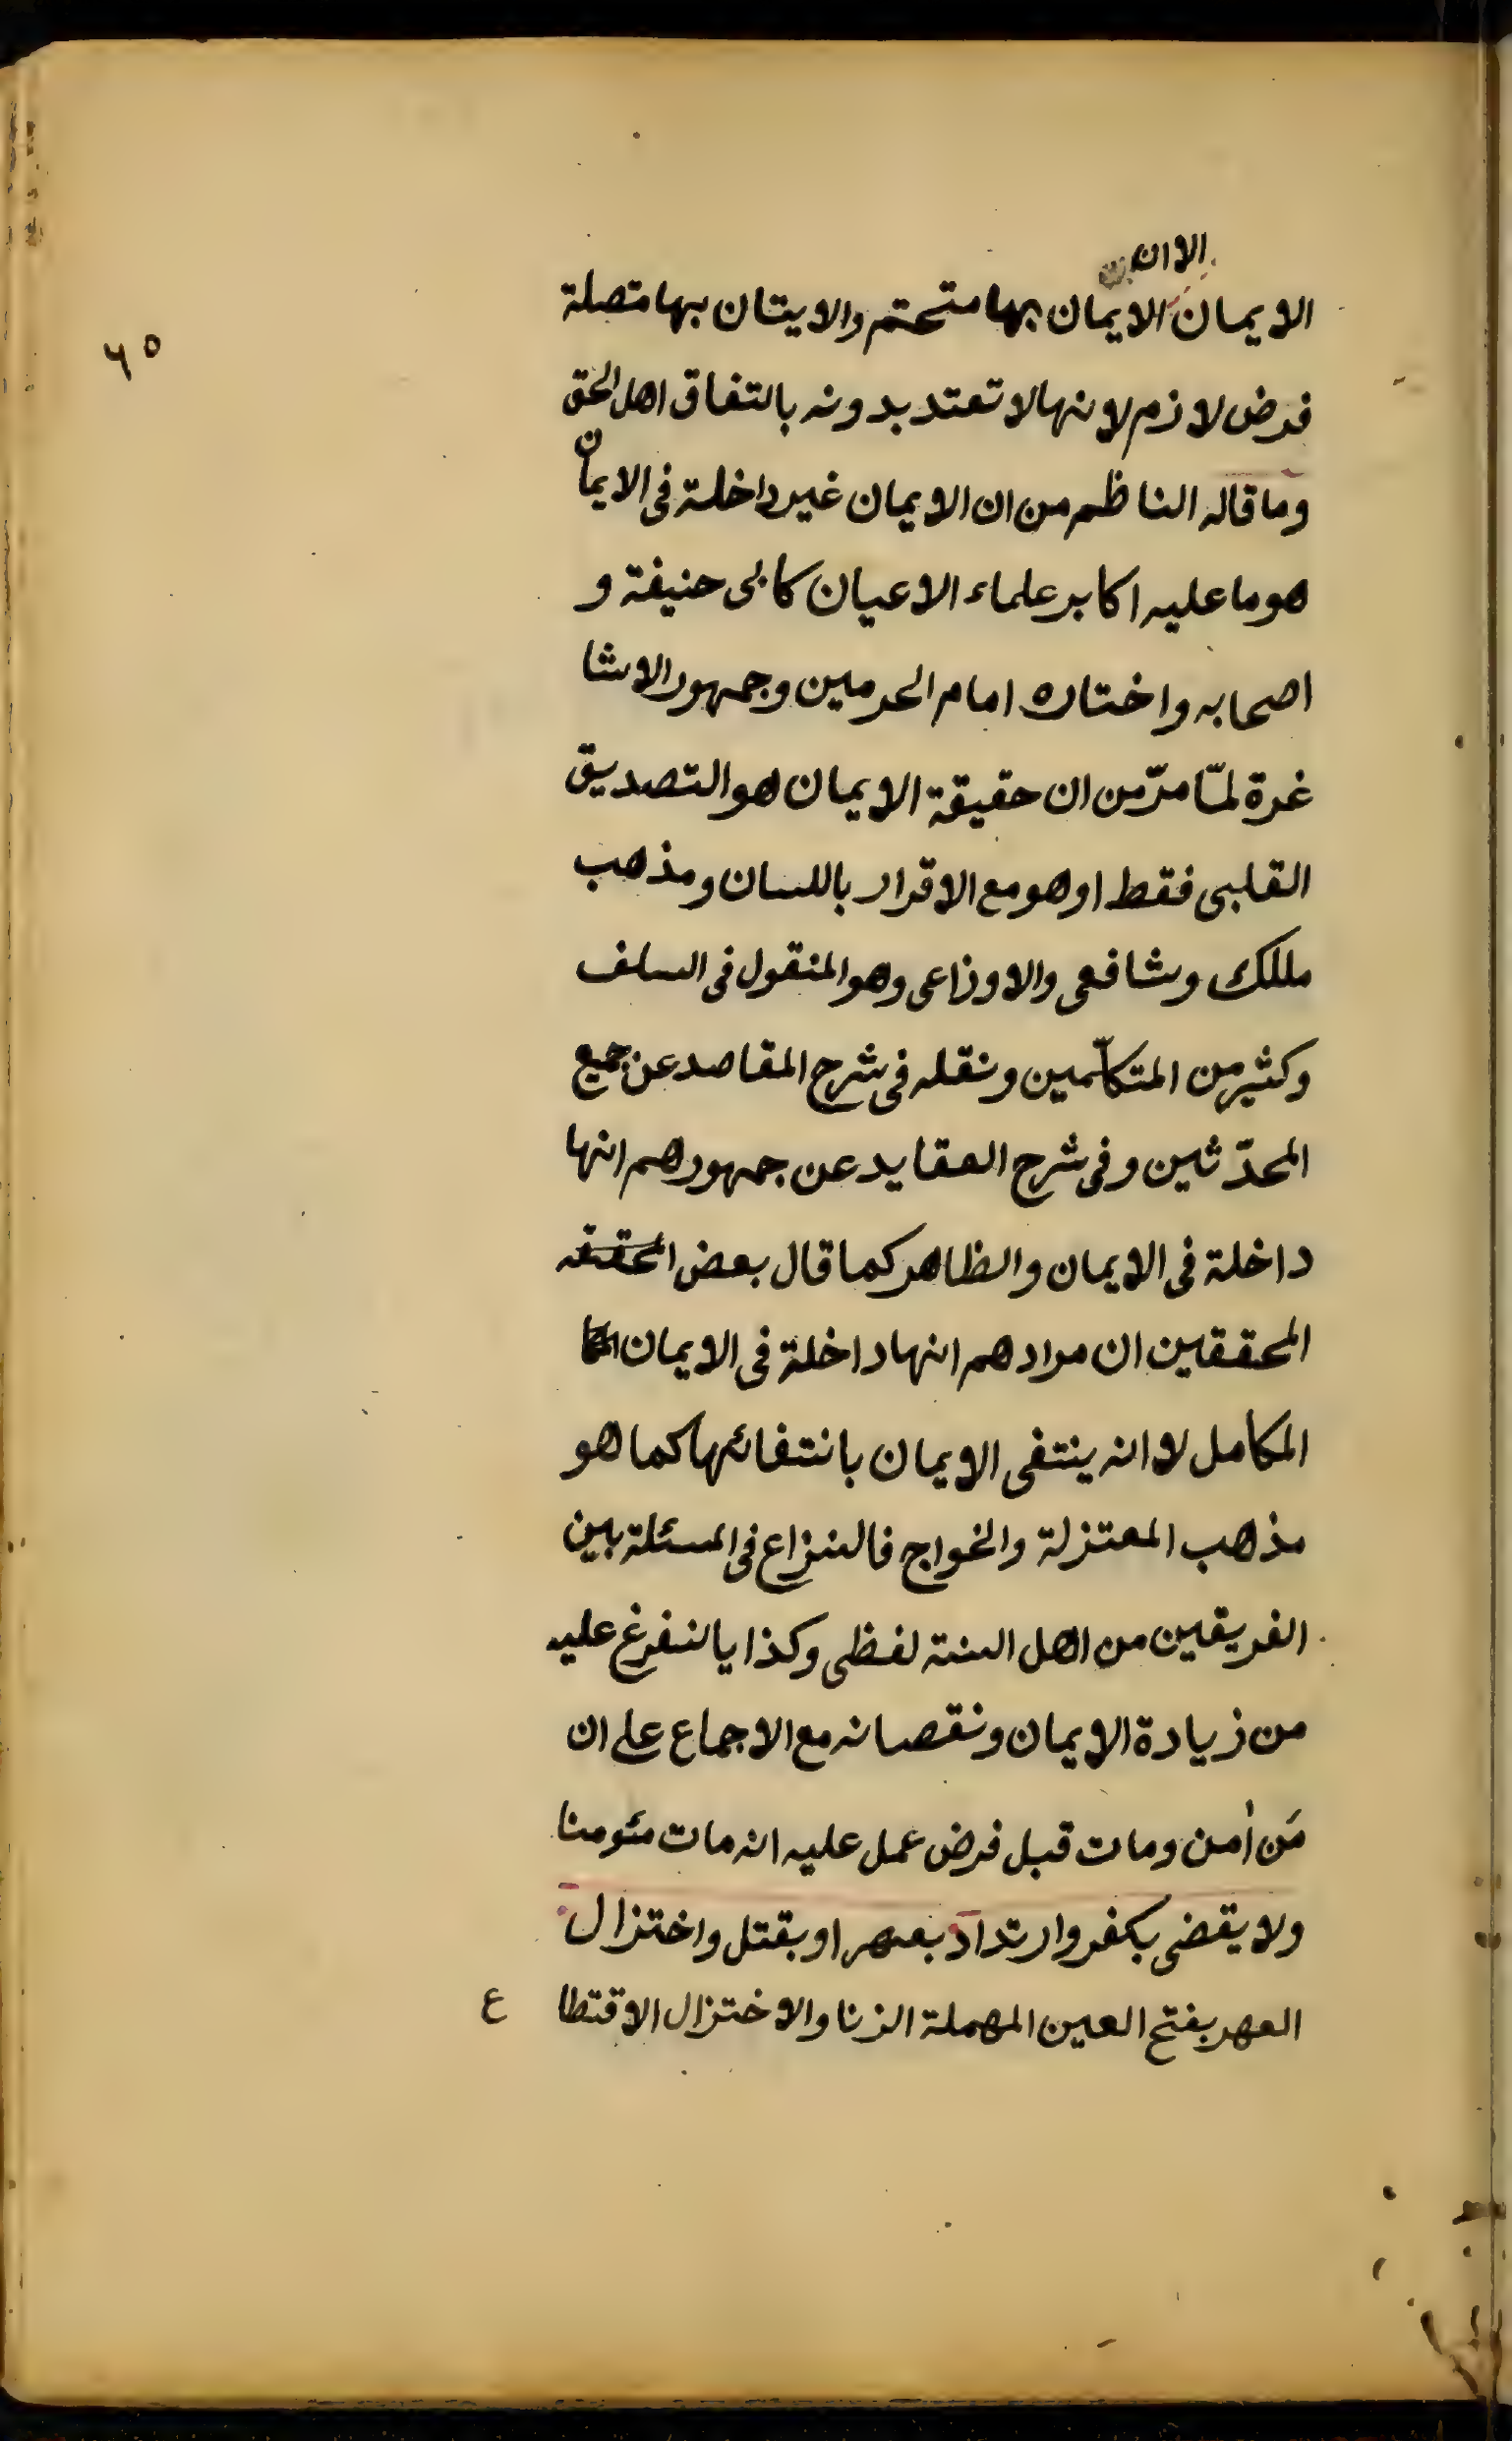 الا ان
الايمان الايمان بها متحتم والايتان بها متصلة
٦٥
فرض لازم لانها لا تعتد بدونه بالتفاق اهل الحق
وما قاله الناظم من ان الايمان غير داخلة فى الايمان
هو ما عليه اكابر علماء الاعيان كابى حنيفة و
اصحابه واختاره امام الحرمين وجمهور الاشا
غرة لمّا مرّ من ان حقيقة الايمان هو التصديق
القلبى فقط او هو مع الاقرار باللسان ومذهب
مللك وشافعى والاوزاعى وهو المنقول فى السلف
وكثير من المتكلّمين ونقله فى شرح المقاصد عن جميع
المحدّثين وفى شرح العقايد عن جمهورهم انها
داخلة فى الايمان والظاهر كما قال بعض المحققه
المحققين ان مرادهم انها داخلة فى الايمان
المكامل لا انه ينتفى الايمان بانتفائها كما هو
مذهب المعتزلة والخواج فالنزاع فى المسئلة بين
الفريقين من اهل السنة لفظى وكذا يالنفرغ عليه
من زيادة الايمان ونقصانه مع الاجماع على ان
مَن أمن ومات قبل فرض عمل عليه انه مات مئومنا
ولا يقضى بكفر وارتداد بعهر او بقتل واختزال
العهر بفتح العين المهملة الزنا والاختزال الاقتطا ع